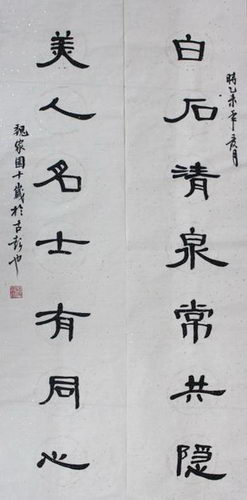 時乙未年夏月
白石清泉常共隐
美人名士有同心
魏家國十歲於古彭也